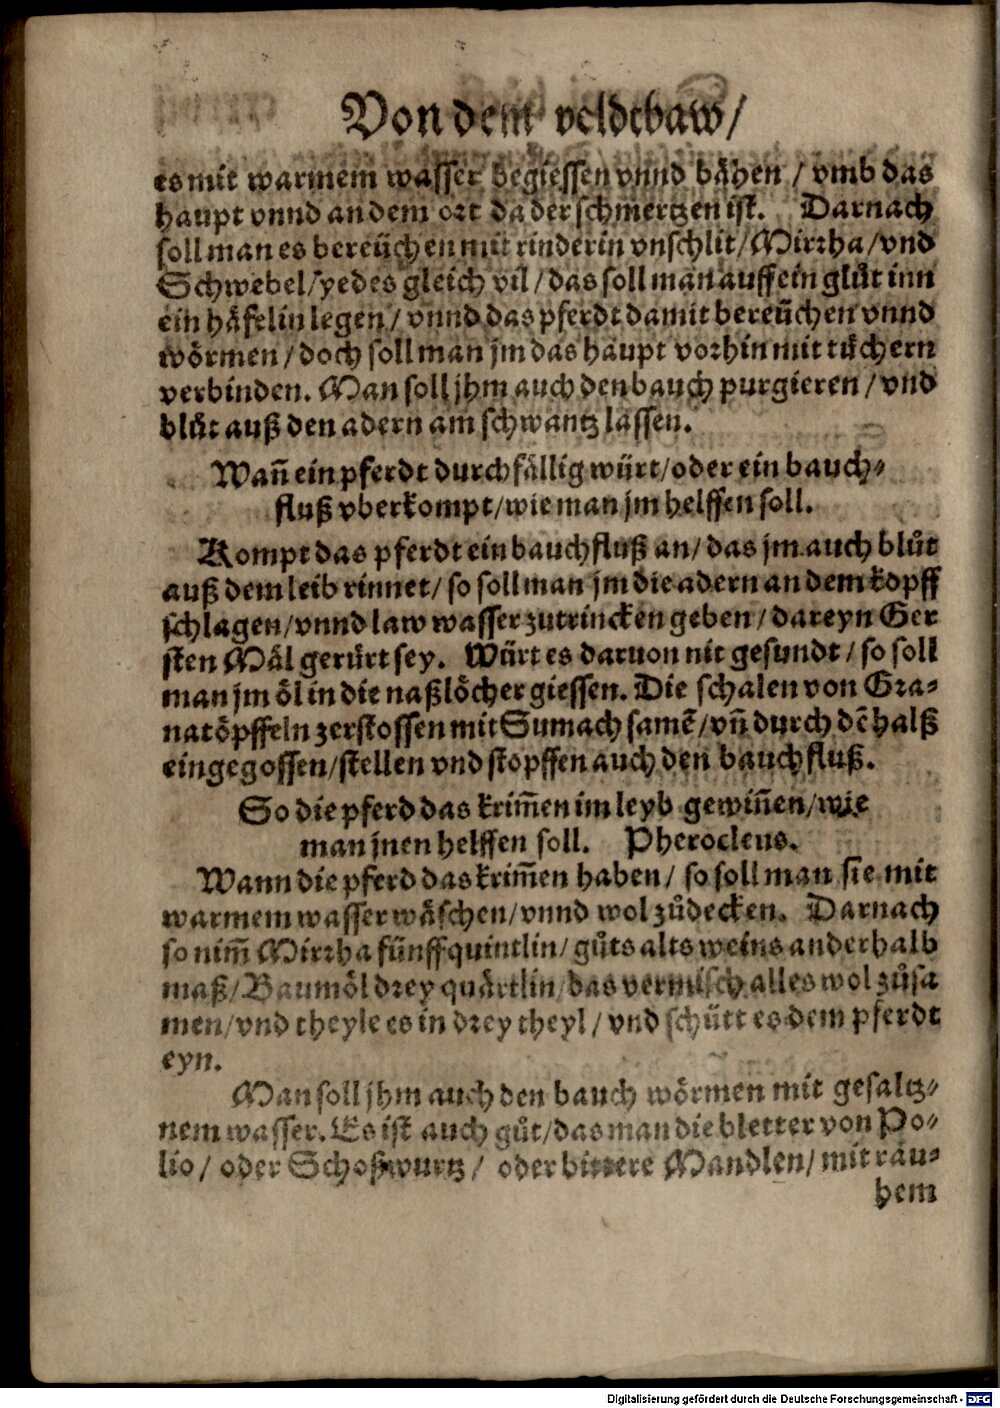 Von dem veldtbaw/
es mit warmem wasser begiessen vnnd bähen / vmb das
haupt vnnd an dem ort da der schmertzen ist. Darnach
soll man es bereüchen mit rinderin vnschlit/Mirrha/vnd
Schwebel/yedes gleich vil/das soll man auff ein glůt inn
ein häfelin legen/vnnd das pferdt damit bereüchen vnnd
wörmen/doch soll man jm das haupt vorhin mit tüchern
verbinden. Man soll jhm auch den bauch purgieren/vnd
blůt auß den adern am schwantz lassen.
Wañ ein pferdt durchfällig würt/oder ein bauch-
fluß vberkompt/wie man jm helffen soll.
Kompt das pferdt ein bauchfluß an/das jm auch blůt
auß dem leib rinnet/so soll man jm die adern an dem kopff
schlagen/vnnd law wasser zutrincken geben/dareyn Ger
sten Mäl gerürt sey. Würt es daruon nit gesundt/so soll
man jm öl in die naßlöcher giessen. Die schalen von Gra-
natöpffeln zerstossen mit Sumach samẽ/vñ durch dẽ halß
eingegossen/stellen vnd stopffen auch den bauchfluß.
So die pferd das krim̃en im leyb gewiñen/wie
man jnen helffen soll. Pherocleus.
Wann die pferd das krim̃en haben/so soll man sie mit
warmem wasser wäschen/vnnd wol zůdecken. Darnach
so nim̃ Mirrha fünff quintlin/gůts alts weins anderhalb
maß/Baumöl drey quärtlin/das vermisch alles wol zůsa
men/vnd theyle es in drey theyl/vnd schütt es dem pferdt
eyn.
Man soll jhm auch den bauch wörmen mit gesaltz-
nem wasser. Es ist auch gůt/das man die bletter von Po-
lio/oder Schoßwurtz/oder bittere Mandlen/mit rau-
hem
Digitalisierung gefördert durch die Deutsche Forschungsgemeinschaft - DFG